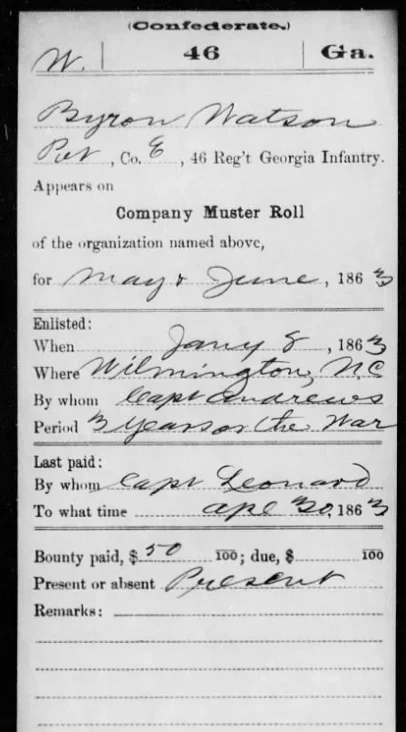 (Confederate.)
W. 46 Ga.
Byron Watson
Pvt, Co. E, 46 Reg't Georgia Infantry.
Appears on
Company Muster Roll
of the organization named above,
for May & June, 1863
Enlisted:
When Jany 8, 1863
Where Wilmington, N.C
By whom Capt Andrews
Period 3 years or the War
Last paid:
By whom Capt Leonard
To what time Apl 30, 1863
Bounty paid, $50 100; due, $ 100
Present or absent Present
Remarks: